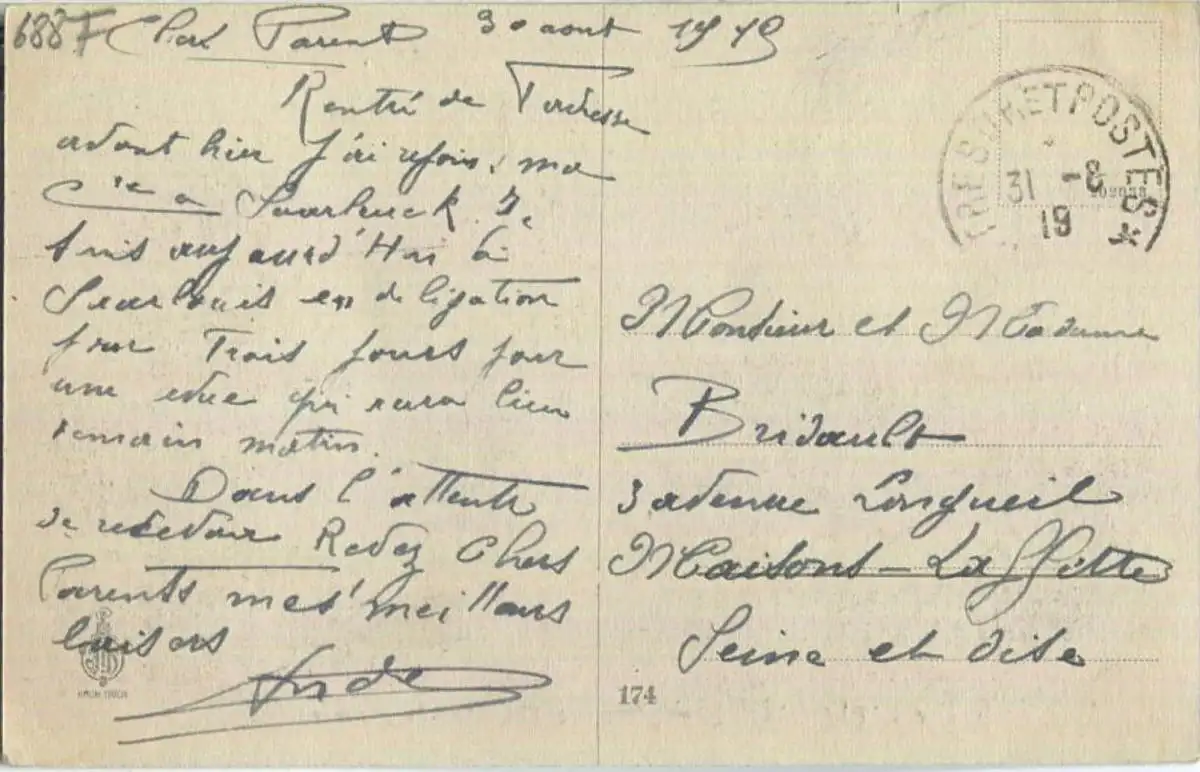 6887
Chers Parents 30 aout 1919
Rentré de
avant hier j'ai rejoins ma
Cie a Saarbruck. Je
suis aujourd'Hui à
Saarlouis en deligation
pour Trois jours pour
une revue qui aura lieu
demain matin.
Dans l'attente
de recevoir Recevez Chers
Parents mes meillours
baisers
André
TRESOR ET POSTES *
31 -8
19
Monsieur et Madame
Bridault
3 avenue Longueil
Maisons-Laffitte
Seine et Oise
174